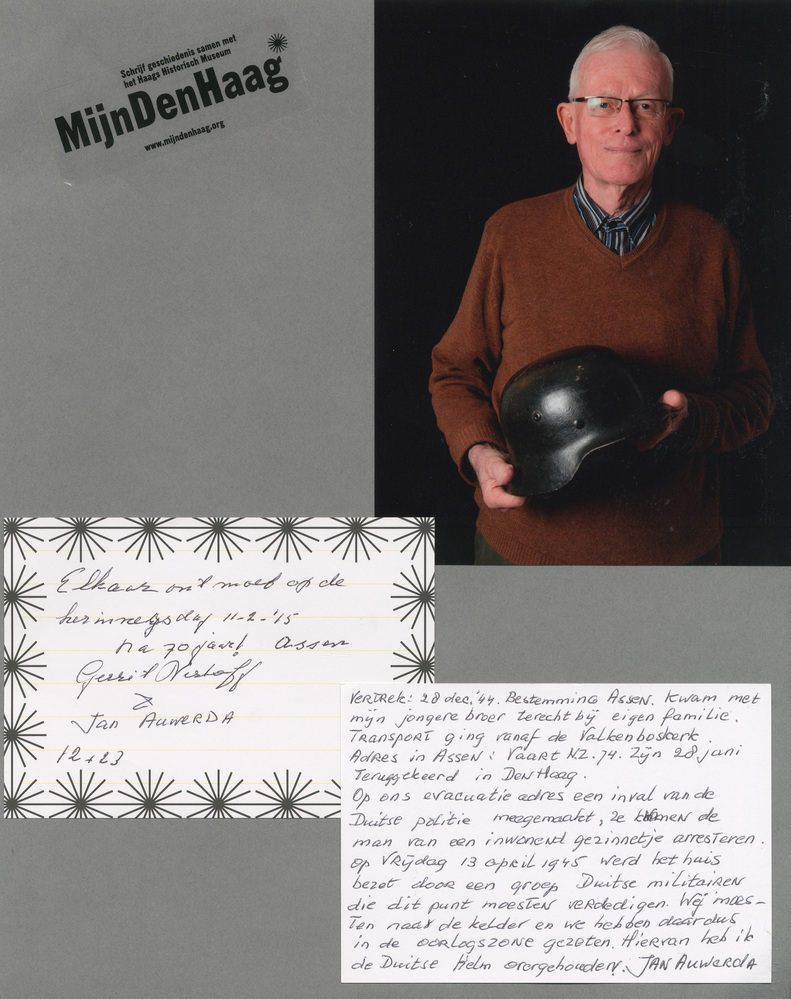 Schrijf geschiedenis samen met
het Haags Historisch Museum
MijnDenHaag
www.mijndenhaag.org
Elkaar ontmoet op de
11-2-'15
na 70 jaar! Assen
Gerrit
&
Jan AUWERDA
12+23
Vertrek: 28 dec.'44. Bestemming Assen. Kwam met
mijn jongere broer terecht bij eigen familie.
Transport ging vanaf de Valkenboskerk.
Adres in Assen: Vaart N.Z. 74. Zijn 28 juni
Teruggekeerd in Den Haag.
Op ons evacuatie adres een inval van de
Duitse politie meegemaakt, ze kwamen de
man van een inwonend gezinnetje arresteren.
Op Vrijdag 13 april 1945 werd het huis
bezet door een groep Duitse militairen
die dit punt moesten verdedigen. Wij moes-
ten naar de kelder en we hebben daar dus
in de oorlogszone gezeten. Hiervan heb ik
de Duitse Helm overgehouden. JAN AUWERDA